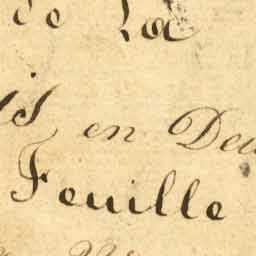 de La
is, en Deu
Feuille